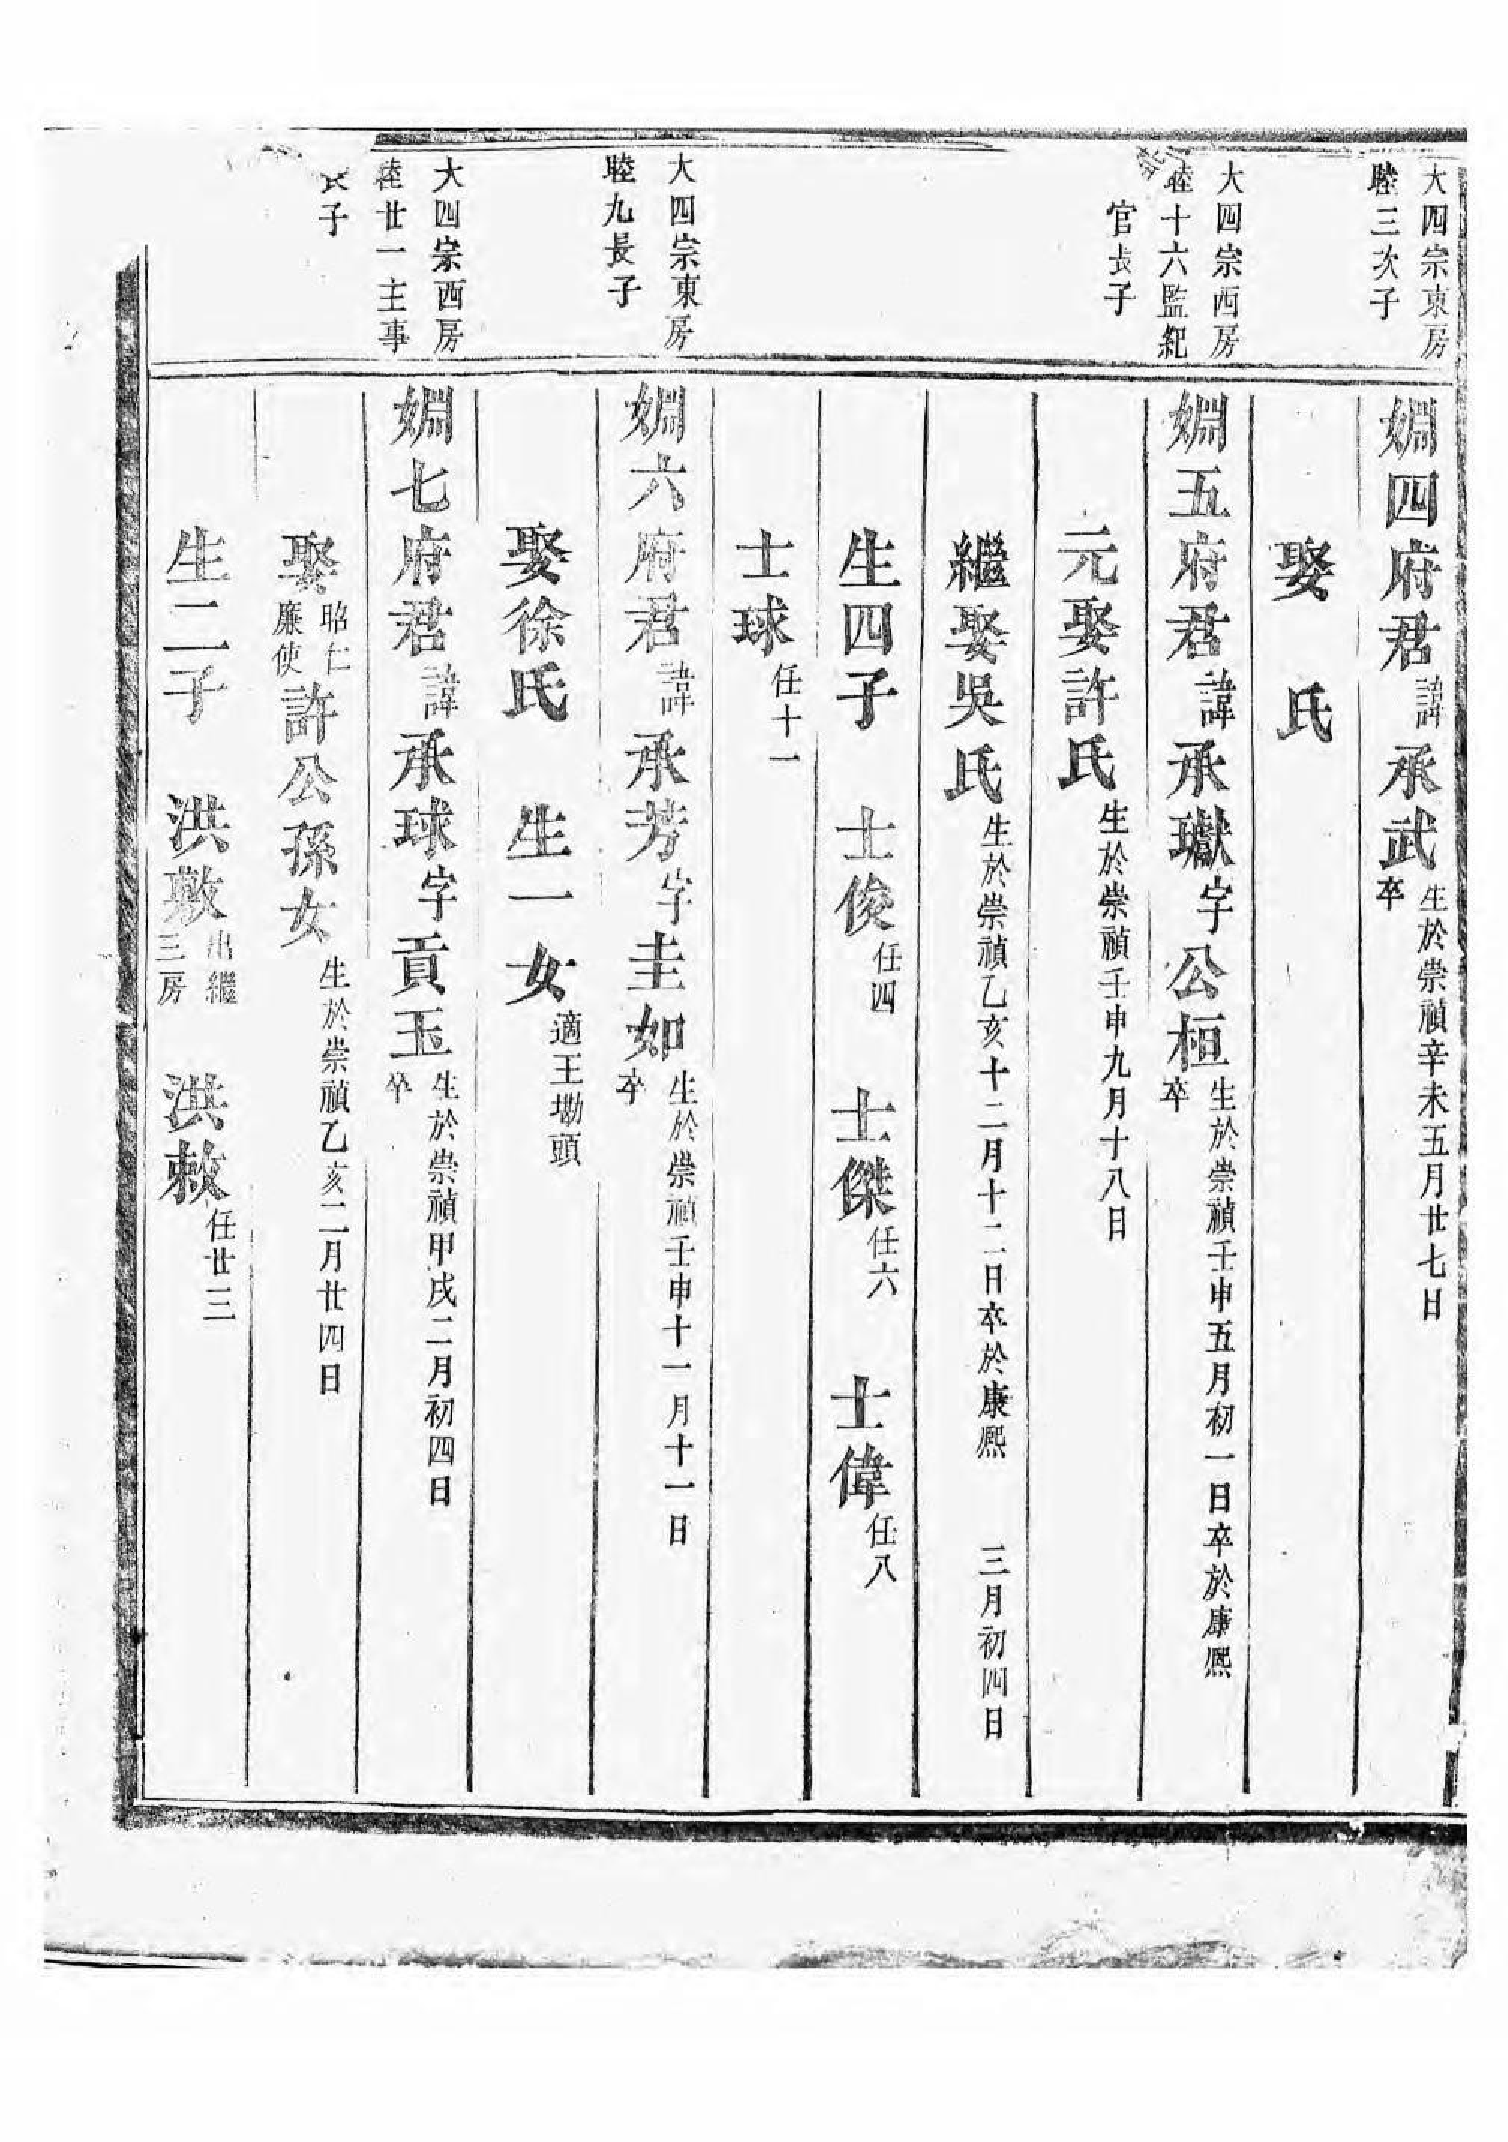 大四宗東房
睦三次子
嫺四府君諱承武生於崇禎辛未五月廿七日
卒
娶　氏
大四宗西房
睦十六監紀
官長子
嫺五府君諱承瓛字公桓生於崇禎壬申五月初一日卒於康熙
卒
元娶許氏生於崇禎壬申九月十八日
繼娶吳氏生於崇禎乙亥十二月十二日卒於康熙　三月初四日
生四子　士俊任四　士傑任六　士偉任八
士球任十一
大四宗東房
睦九長子
嫺六府君諱承芳字圭如生於崇禎壬申十一月十一日
卒
娶徐氏　生一女適王墈頭
大四宗西房
睦廿一主事
長子
嫺七府君諱承球字貢玉生於崇禎甲戌二月初四日
卒
娶昭仁廉使許公孫女生於崇禎乙亥二月廿四日
生二子　洪敷出繼三房　洪敕任廿三